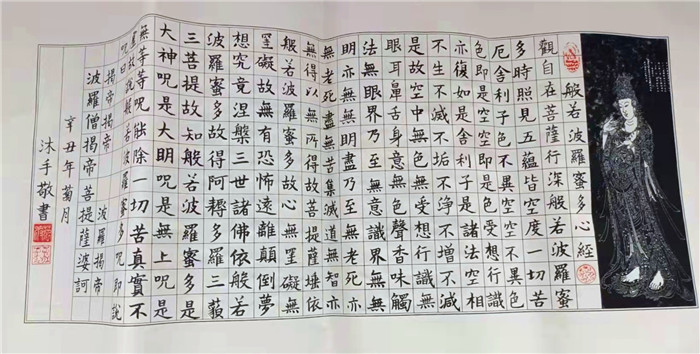 般若波羅蜜多心經
觀自在菩薩行深般若波羅蜜
多時照見五蘊皆空度一切苦
厄舍利子色不異空空不異色
色即是空空即是色受想行識
亦復如是舍利子是諸法空相
不生不滅不垢不淨不增不減
是故空中無色無受想行識無
眼耳鼻舌身意無色聲香味觸
法無眼界乃至無意識界無無
明亦無無明盡乃至無老死亦
無老死盡無苦集滅道無智亦
無得以無所得故菩提薩埵依
般若波羅蜜多故心無罣礙無
罣礙故無有恐怖遠離顛倒夢
想究竟涅槃三世諸佛依般若
波羅蜜多故得阿耨多羅三藐
三菩提故知般若波羅蜜多是
大神呪是大明呪是無上呪是
無等等呪能除一切苦真實不
虛故說般若波羅蜜多呪即說
呪曰
揭帝揭帝 波羅揭帝
波羅僧揭帝菩提薩婆訶
辛丑年菊月
沐手敬書